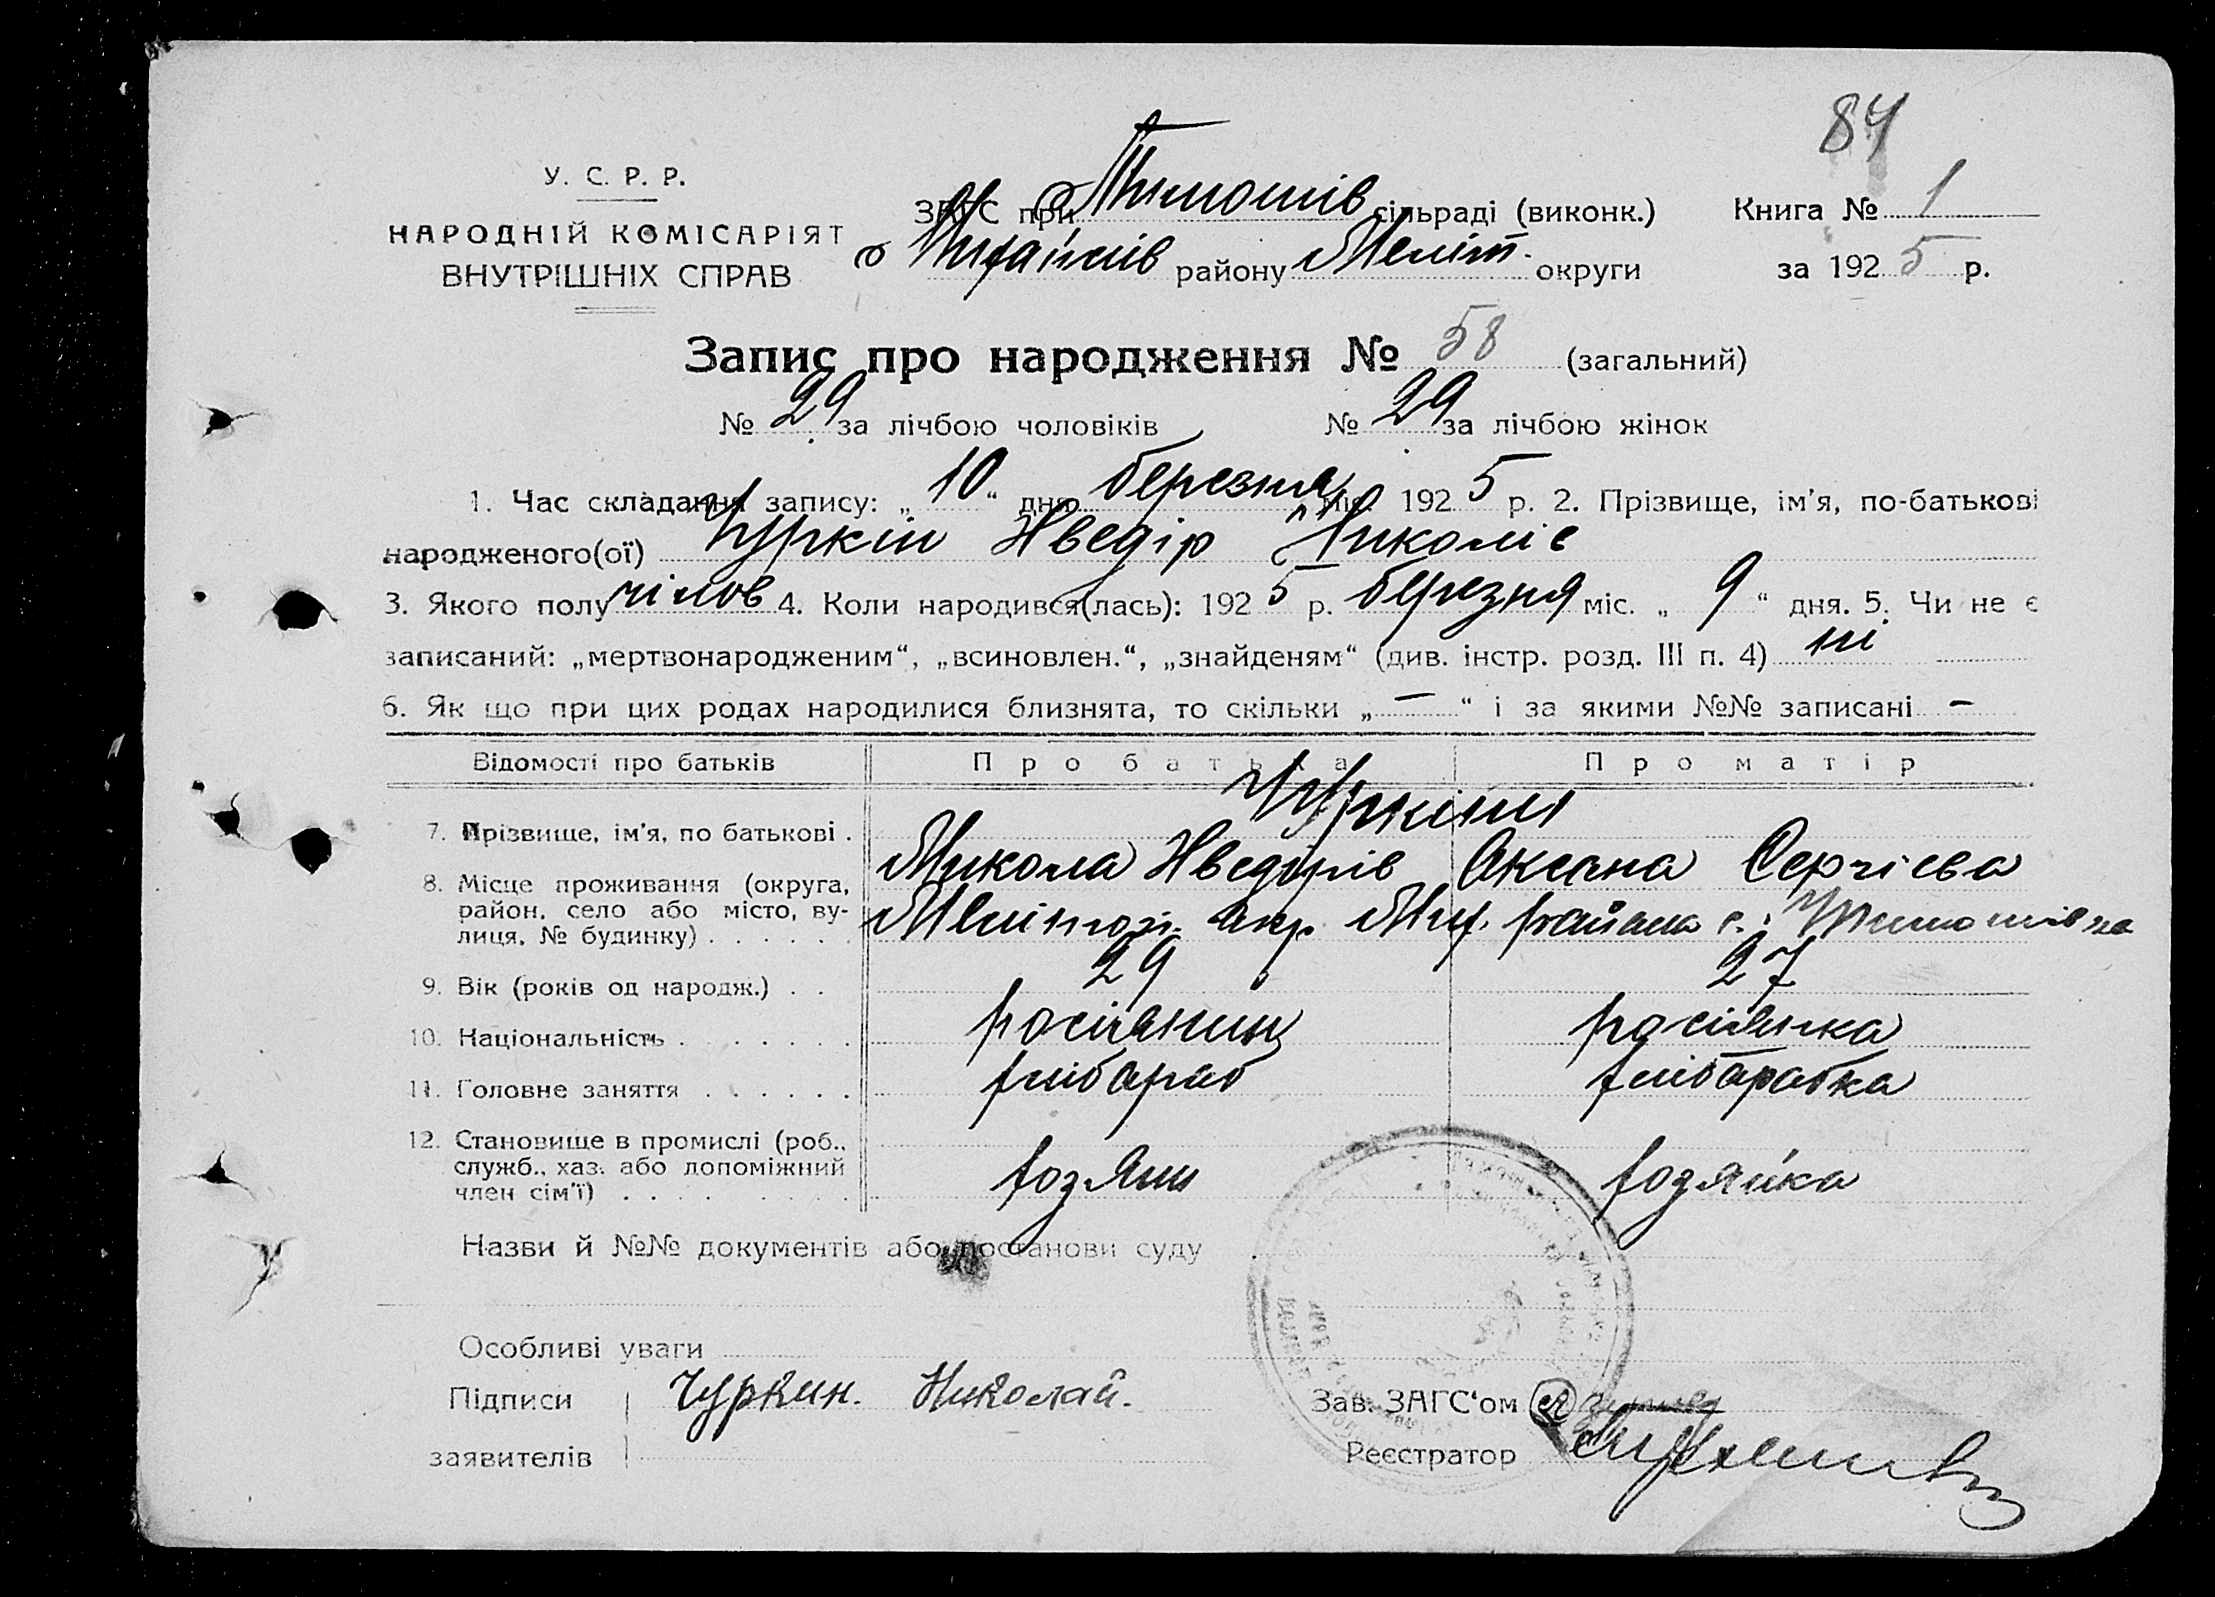 84
У. С. Р. Р.
НАРОДНІЙ КОМІСАРІЯТ
ВНУТРІШНІХ СПРАВ
ЗАГС при Тимошів сільраді (виконк.)
Михайлів району Меліт. округи
Книга № 1
за 1925 р.
Запис про народження № 58 (загальний)
№ 29 за лічбою чоловіків № 29 за лічбою жінок
1. Час складання запису: „10“ дня березня міс. 1925 р. 2. Прізвище, ім'я, по-батькові
народженого(ої) Чуркін Хведір Миколів
3. Якого полу чілов 4. Коли народився(лась): 1925 р. березня міс. „9“ дня. 5. Чи не є
записаний: „мертвонародженим“, „всиновлен.“, „знайденям“ (див. інстр. розд. III п. 4) ні
6. Як що при цих родах народилися близнята, то скільки „—“ і за якими №№ записані —
Відомості про батьків Про батька Про матір
Чуркіни
7. Прізвище, ім'я, по батькові . Микола Хведорів Аксана Сергієва
8. Місце проживання (округа, район, село або місто, вулиця, № будинку) . . . . . . Мелітоп. акр. Мих. району с. Тимошівка
9. Вік (років од народж.) . . 29 27
10. Національність . . . . . . . росіянин росіянка
11. Головне заняття . . . . . . хлібороб хлібаробка
12. Становище в промислі (роб., служб., хаз. або допоміжний член сім'ї) . . . . . . . . . хозяин хозяйка
Назви й №№ документів або постанови суду
Особливі уваги
Підписи Чуркин. Николай.
заявителів
Зав. ЗАГС'ом
Реєстратор